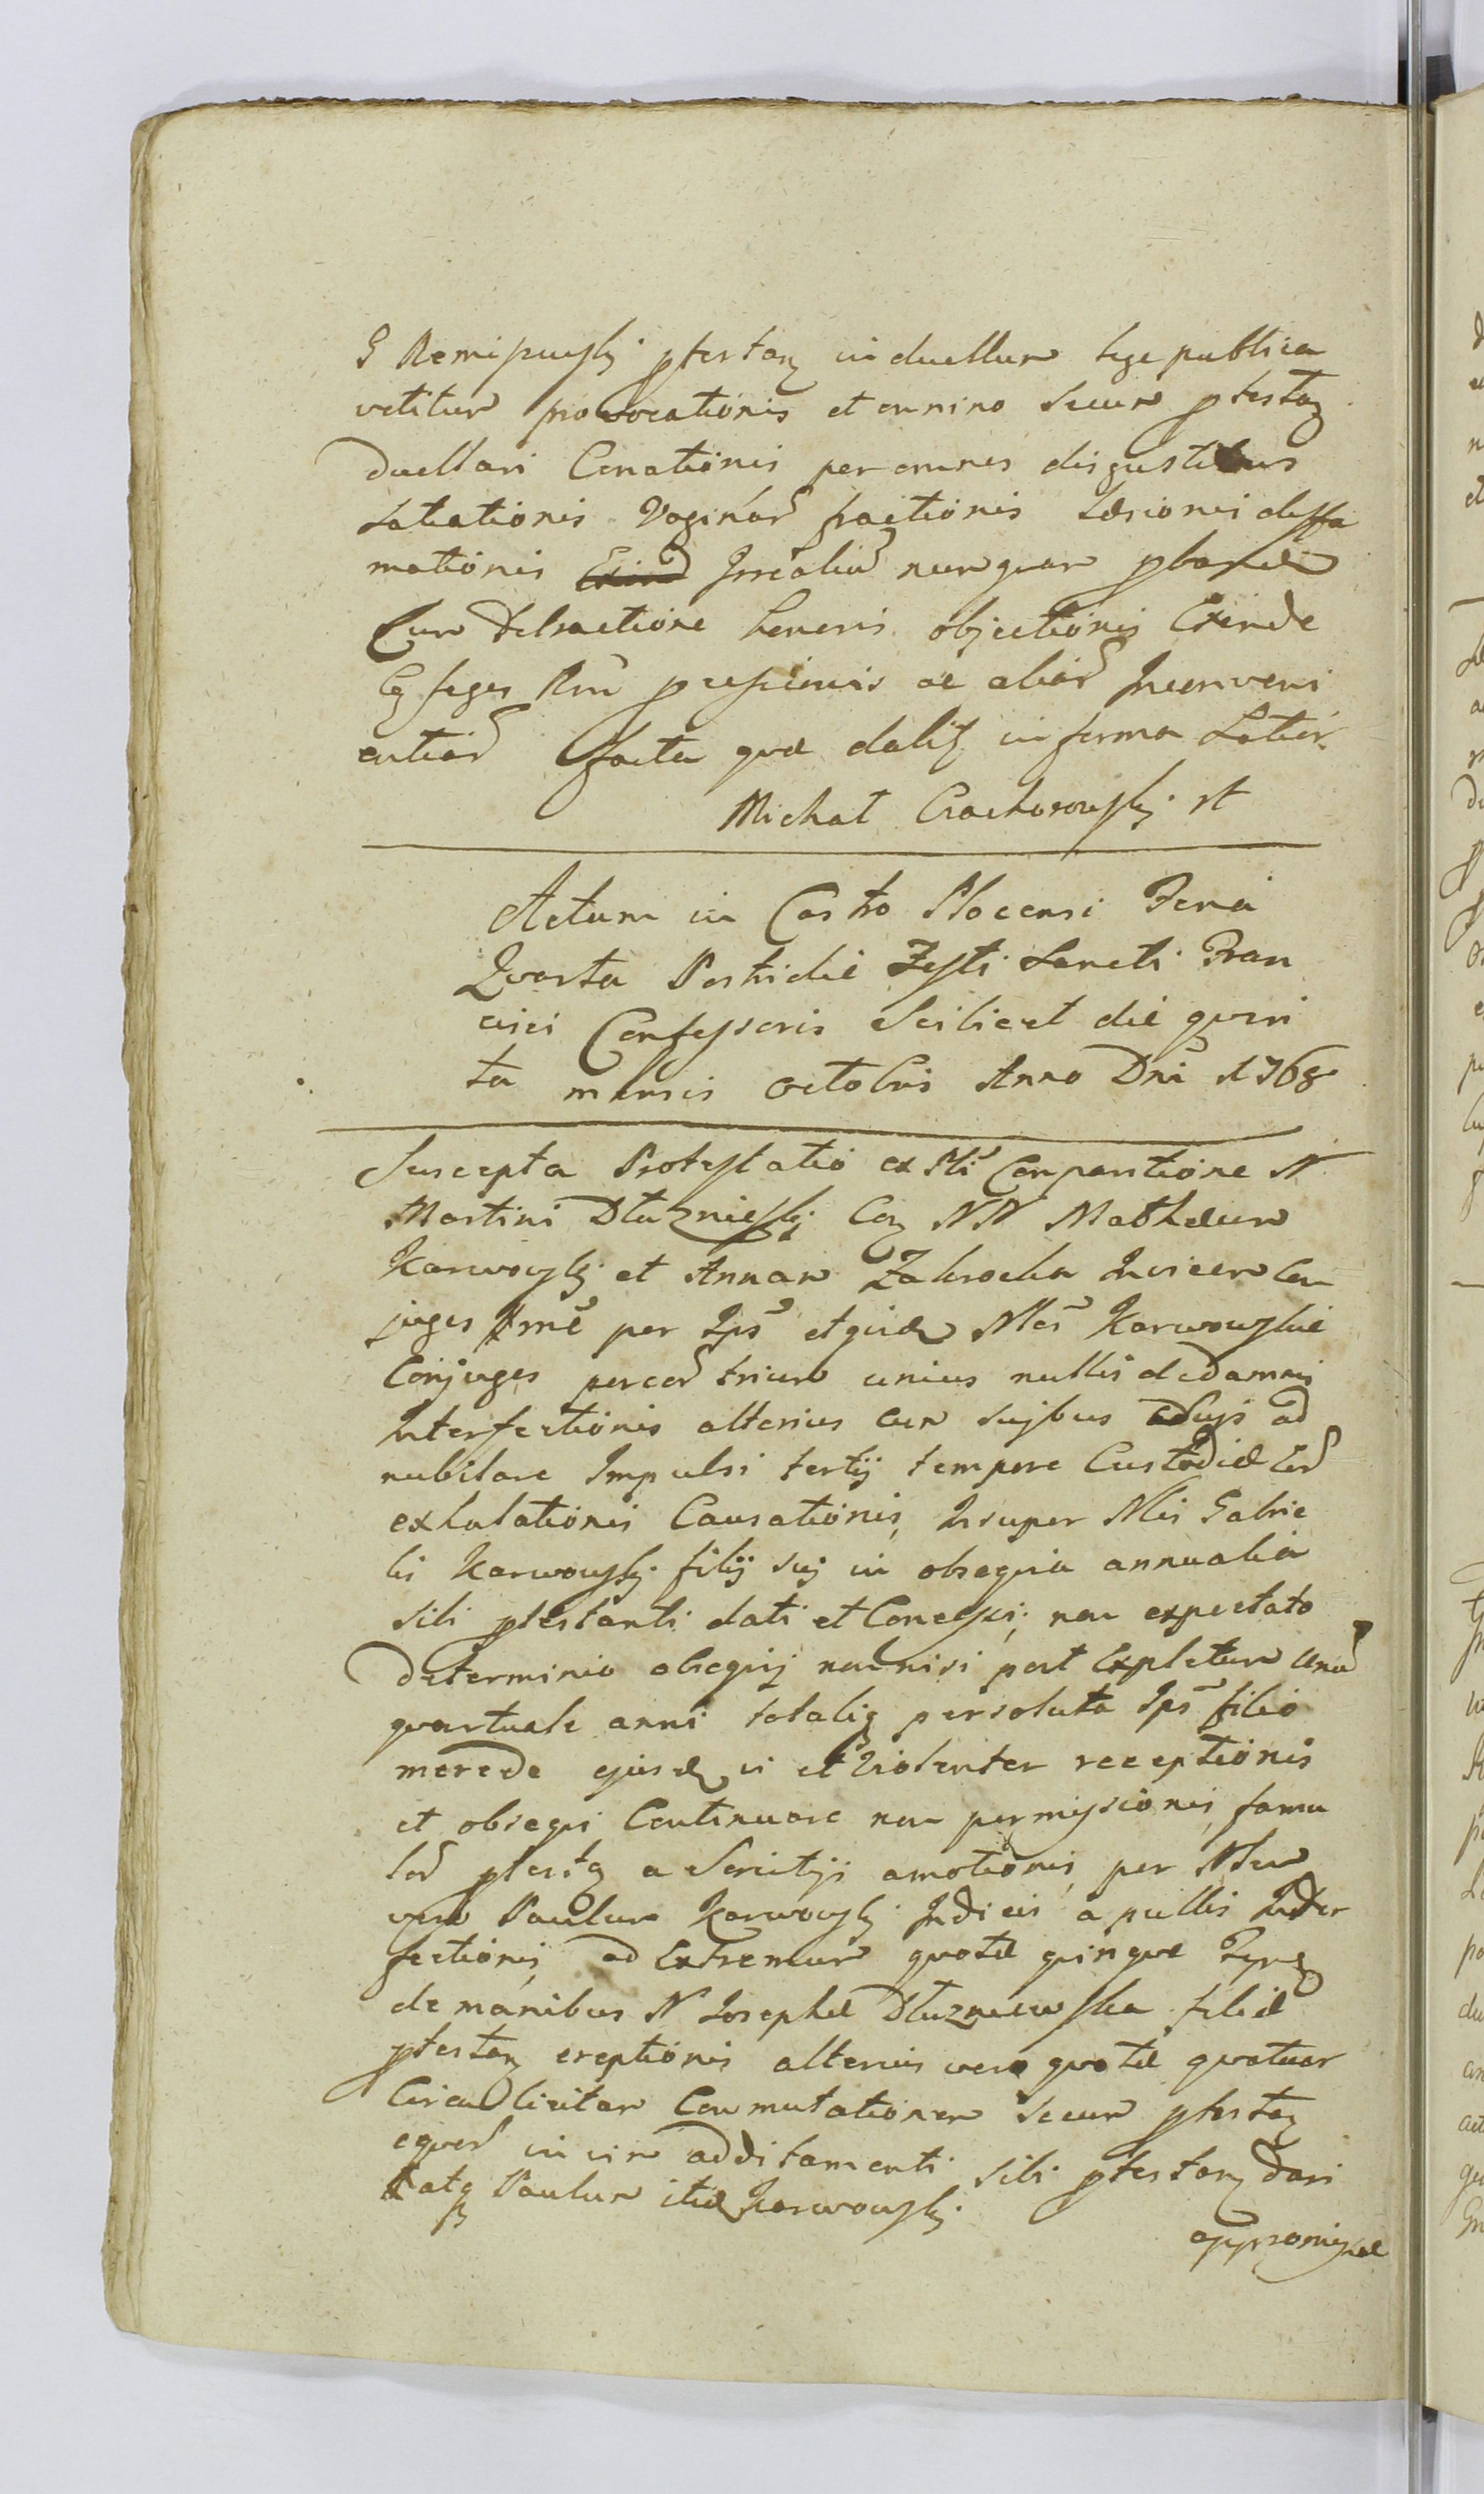 G Rempiewski ptestan in duellum lege publica
vetitum provocationis et omnino secum ptestan
duellari Conationis per omnes disgustibus
satiationis Vaginar fractionis Læsionis diffa
mationis nunquam pbandæ
Cum detractione honoris objectionis Exinde
ac aliar Inconveni
entiar facta quæ in forma Latior.
Michał Ciachorowski mp
Actum in Castro Plocensi Feria
Quarta Postridie Festi Sancti Fran
cisci Confessoris Scilicet die quin
ta mensis octobris Anno Dni 1768
Suscepta Protestatio ex Comparitione N
Martini Dłuzniewski Con NN Mathæum
Karwowski et Annam Zakrocka Invicem Con
juges per Ips et quidem Nles Karwowskie
Conjuges porcor trium unius nullis de damnis
Interfectionis alterius cum suibus ad
nubilare Impulsi tertij tempore Custodiæ
exhalationis Causationis, Insuper Nlis Gabrie
lis Karwowski filij sui in obsequia annualia
sibi ptestanti dati et Concessi, non expectato
determinio obsequij non nisi post Expletum unu
quartuale anni totaliq persoluta Ips filio
mercede ejusdem vi et Violenter receptionis
et obsequi Continuare non permissionis, famu
lor ptestan a Servitijs amotionis, per Nlem
vero Paulum Karwowski Indicis a pullis Inter
fectionis, ad Extremum quotæ quinque
de manibus N Josephæ Dłuzniewska filiæ
ptestan ereptionis alterius vero quotæ quatuor
Circa licitam Commutationem secum ptestan
equor in vim additamenti sibi ptestan dari
Paulum itidem Karwowski
appromissæ